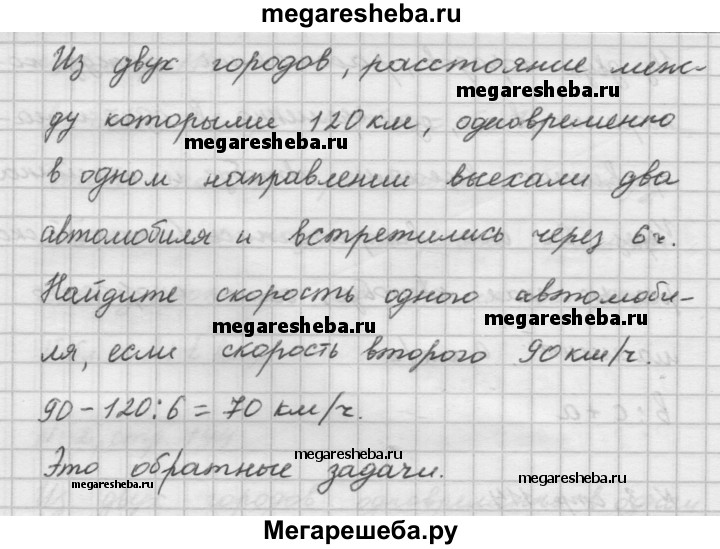 megaresheba.ru
Из двух городов, расстояние меж-
megaresheba.ru
ду которыми 120 км, одновременно
megaresheba.ru
в одном направлении выехали два
автомобиля и встретились через 6 ч.
Найдите скорость одного автомоби-
megaresheba.ru
megaresheba.ru
ля, если скорость второго 90 км/ч.
90 - 120 : 6 = 70 км/ч.
Это обратные задачи.
megaresheba.ru
megaresheba.ru
megaresheba.ru
Мегарешеба.ру